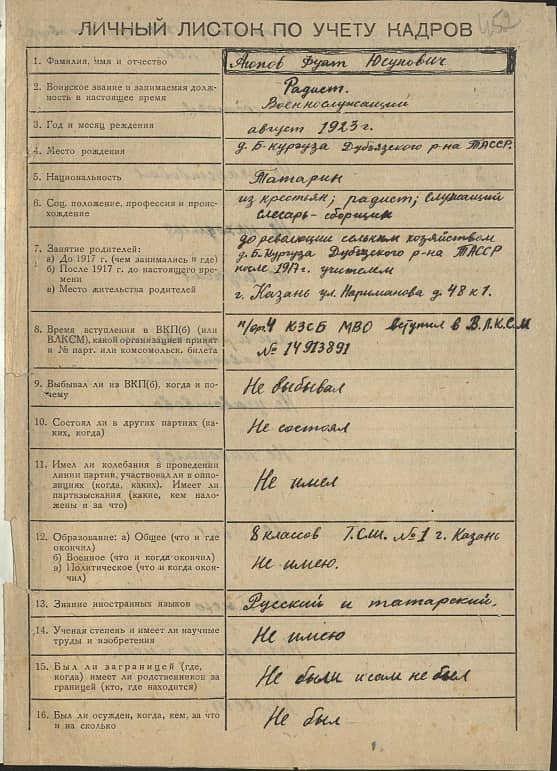 452
ЛИЧНЫЙ ЛИСТОК ПО УЧЕТУ КАДРОВ
1. Фамилия, имя и отчество
Аюпов Фуат Юсупович
2. Воинское звание и занимаемая долж-
ность в настоящее время
Радист.
Военнослужащий
3. Год и месяц рождения
август 1923 г.
4. Место рождения
д. Б-Кургуза Дубъязского р-на ТАССР.
5. Национальность
Татарин
6. Соц. положение, профессия и проис-
хождение
из крестьян; радист; служащий
слесарь-сборщик
7. Занятие родителей:
а) До 1917 г. (чем занимались и где)
б) После 1917 г. до настоящего вре-
мени
в) Место жительства родителей
до революции сельким хозяйством
д. Б-Кургуза Дубъязского р-на ТАССР
после 1917 г. учителем
г. Казань ул. Нариманова д. 48 к 1.
8. Время вступления в ВКП(б) (или
ВЛКСМ), какой организацией принят
и № парт. или комсомольск. билета
п/ор. 4 КЗСБ МВО вступил в В.Л.К.С.М
№ 14913891
9. Выбывал ли из ВКП(б), когда и по-
чему
Не выбывал
10. Состоял ли в других партиях (ка-
ких, когда)
Не состоял
11. Имел ли колебания в проведении
линии партии, участвовал ли в оппо-
зициях (когда, каких). Имеет ли
партвзыскания (какие, кем нало-
жены и за что)
Не имел
12. Образование: а) Общее (что и где
окончил)
б) Военное (что и когда окончил)
в) Политическое (что и когда окон-
чил)
8 классов Т.С.Ш. №1 г. Казань
Не имею.
13. Знание иностранных языков
Русский и татарский.
14. Ученая степень и имеет ли научные
труды и изобретения
Не имею
15. Был ли заграницей (где,
когда) имеет ли родственников за
границей (кто, где находится)
Не были и сам не был
16. Был ли осужден, когда, кем, за что
и на сколько
Не был